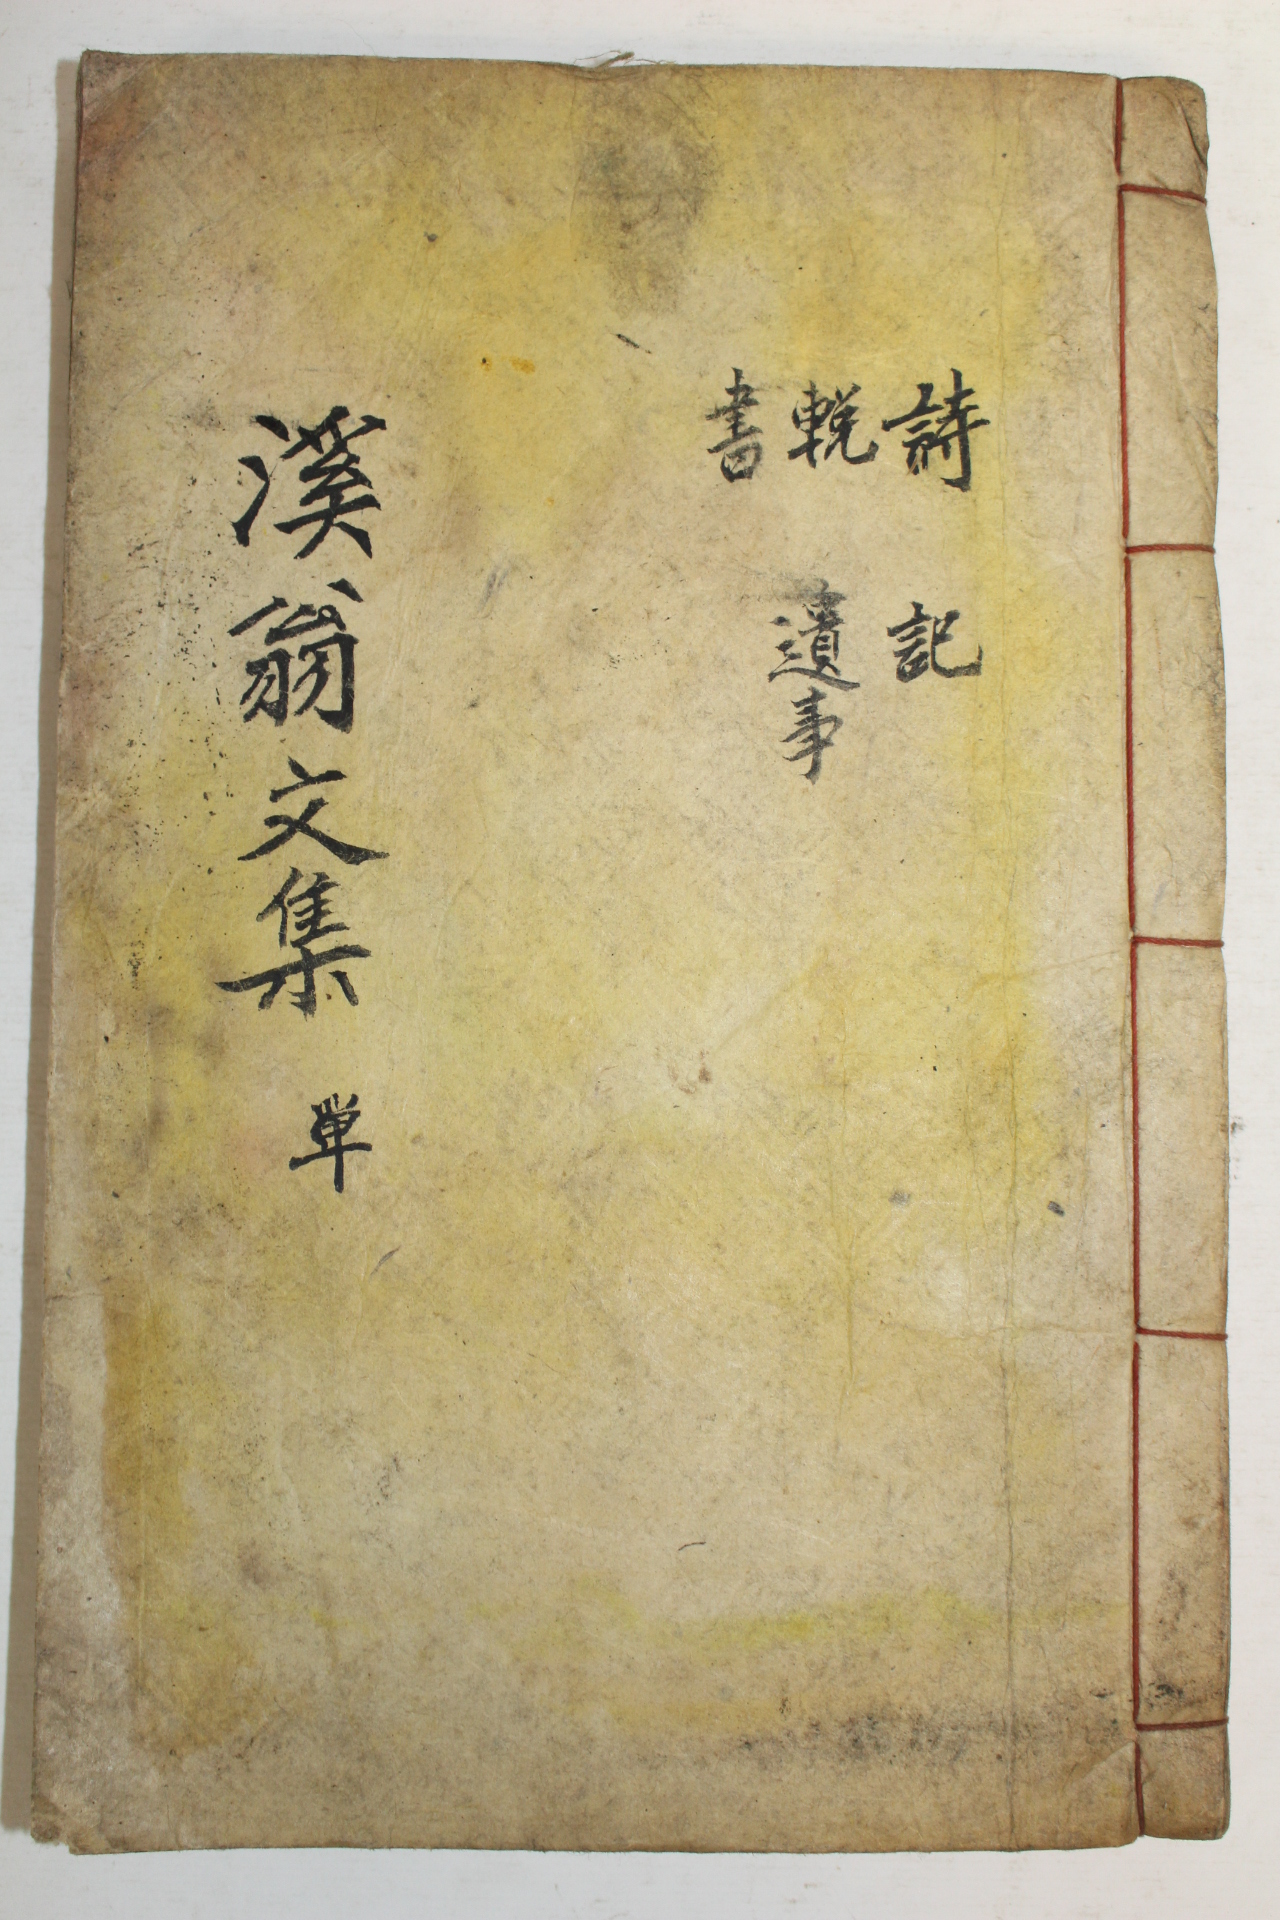 詩 記
輓 遺事
書
溪翁文集 單